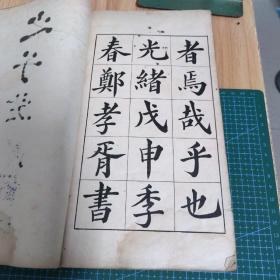 者焉哉乎也
光緒戊申季
春鄭孝胥書